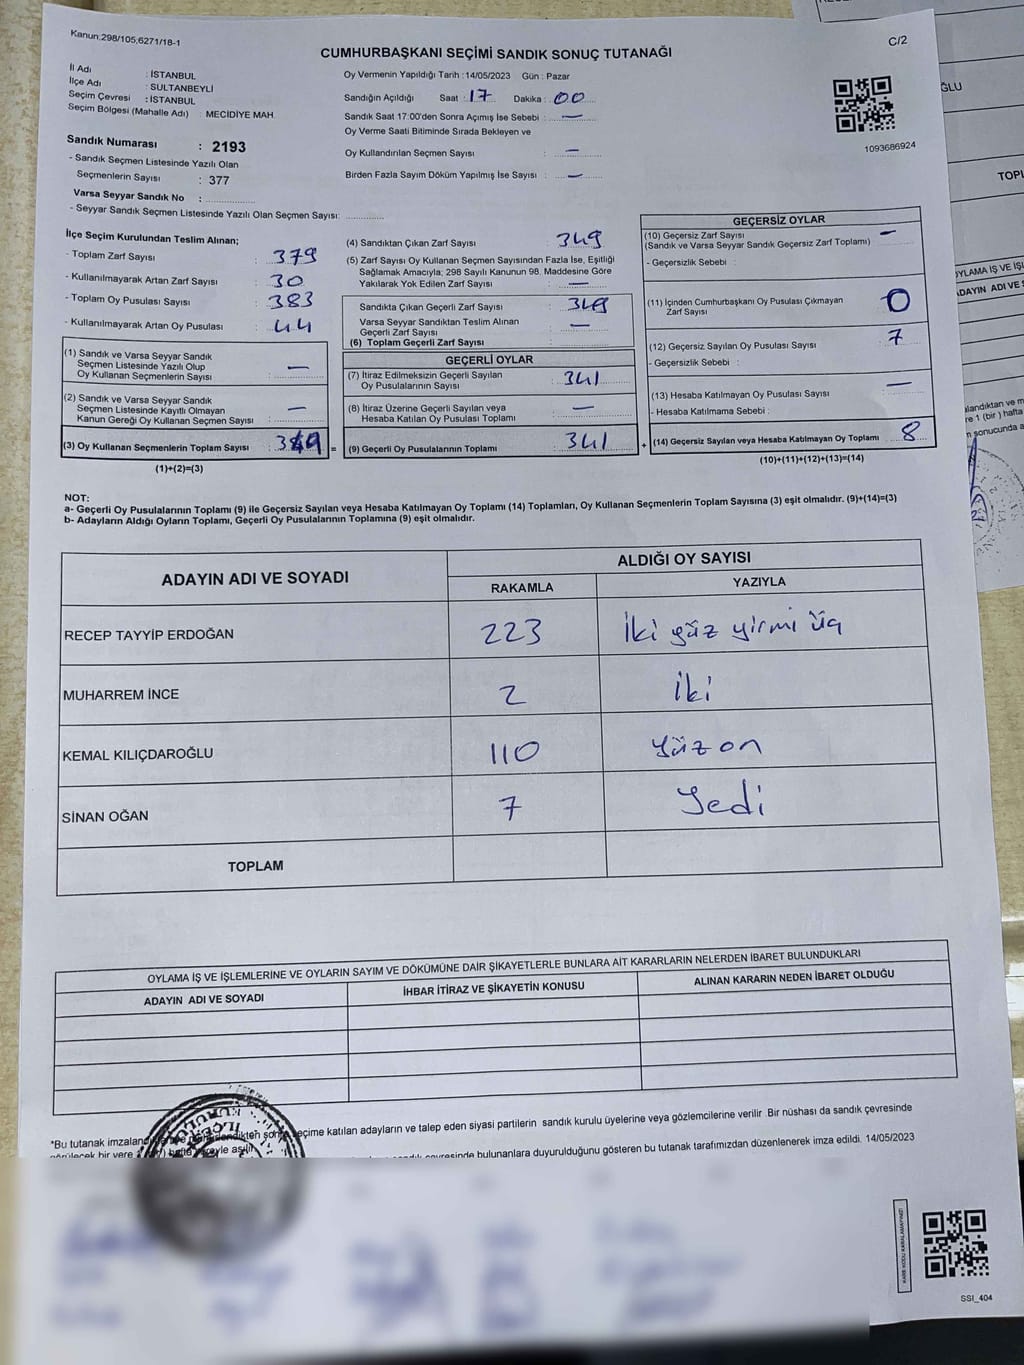 Kanun,298/105,6271/18-1
CUMHURBAŞKANI SEÇİMİ SANDIK SONUÇ TUTANAĞI
C/2
İl Adı : İSTANBUL
İlçe Adı : SULTANBEYLİ
Seçim Çevresi : İSTANBUL
Seçim Bölgesi (Mahalle Adı) : MECİDİYE MAH.
Sandık Numarası : 2193
- Sandık Seçmen Listesinde Yazılı Olan
Seçmenlerin Sayısı : 377
Varsa Seyyar Sandık No :
- Seyyar Sandık Seçmen Listesinde Yazılı Olan Seçmen Sayısı:
Oy Vermenin Yapıldığı Tarih : 14/05/2023 Gün : Pazar
Sandığın Açıldığı Saat : 17 Dakika : 00
Sandık Saat 17:00'den Sonra Açımış İse Sebebi : —
Oy Verme Saati Bitiminde Sırada Bekleyen ve
Oy Kullandırılan Seçmen Sayısı : —
Birden Fazla Sayım Döküm Yapılmış İse Sayısı : —
1093686924
İlçe Seçim Kurulundan Teslim Alınan;
- Toplam Zarf Sayısı : 379
- Kullanılmayarak Artan Zarf Sayısı : 30
- Toplam Oy Pusulası Sayısı : 383
- Kullanılmayarak Artan Oy Pusulası : 44
(1) Sandık ve Varsa Seyyar Sandık
Seçmen Listesinde Yazılı Olup
Oy Kullanan Seçmenlerin Sayısı : —
(2) Sandık ve Varsa Seyyar Sandık
Seçmen Listesinde Kayıtlı Olmayan
Kanun Gereği Oy Kullanan Seçmen Sayısı : —
(3) Oy Kullanan Seçmenlerin Toplam Sayısı : 349 =
(1)+(2)=(3)
(4) Sandıktan Çıkan Zarf Sayısı : 349
(5) Zarf Sayısı Oy Kullanan Seçmen Sayısından Fazla İse, Eşitliği
Sağlamak Amacıyla; 298 Sayılı Kanunun 98. Maddesine Göre
Yakılarak Yok Edilen Zarf Sayısı : —
Sandıkta Çıkan Geçerli Zarf Sayısı : 349
Varsa Seyyar Sandıktan Teslim Alınan
Geçerli Zarf Sayısı : —
(6) Toplam Geçerli Zarf Sayısı :
GEÇERLİ OYLAR
(7) İtiraz Edilmeksizin Geçerli Sayılan
Oy Pusulalarının Sayısı : 341
(8) İtiraz Üzerine Geçerli Sayılan veya
Hesaba Katılan Oy Pusulası Toplamı : —
(9) Geçerli Oy Pusulalarının Toplamı : 341 +
GEÇERSİZ OYLAR
(10) Geçersiz Zarf Sayısı : —
(Sandık ve Varsa Seyyar Sandık Geçersiz Zarf Toplamı)
- Geçersizlik Sebebi :
(11) İçinden Cumhurbaşkanı Oy Pusulası Çıkmayan : 0
Zarf Sayısı
(12) Geçersiz Sayılan Oy Pusulası Sayısı : 7
- Geçersizlik Sebebi :
(13) Hesaba Katılmayan Oy Pusulası Sayısı : —
- Hesaba Katılmama Sebebi :
(14) Geçersiz Sayılan veya Hesaba Katılmayan Oy Toplamı : 8
(10)+(11)+(12)+(13)=(14)
NOT:
a- Geçerli Oy Pusulalarının Toplamı (9) ile Geçersiz Sayılan veya Hesaba Katılmayan Oy Toplamı (14) Toplamları, Oy Kullanan Seçmenlerin Toplam Sayısına (3) eşit olmalıdır. (9)+(14)=(3)
b- Adayların Aldığı Oyların Toplamı, Geçerli Oy Pusulalarının Toplamına (9) eşit olmalıdır.
ADAYIN ADI VE SOYADI ALDIĞI OY SAYISI
RAKAMLA YAZIYLA
RECEP TAYYİP ERDOĞAN 223 İki yüz yirmi üç
MUHARREM İNCE 2 İki
KEMAL KILIÇDAROĞLU 110 Yüz on
SİNAN OĞAN 7 Yedi
TOPLAM
OYLAMA İŞ VE İŞLEMLERİNE VE OYLARIN SAYIM VE DÖKÜMÜNE DAİR ŞİKAYETLERLE BUNLARA AİT KARARLARIN NELERDEN İBARET BULUNDUKLARI
ADAYIN ADI VE SOYADI İHBAR İTİRAZ VE ŞİKAYETİN KONUSU ALINAN KARARIN NEDEN İBARET OLDUĞU
*Bu tutanak seçime katılan adayların ve talep eden siyasi partilerin sandık kurulu üyelerine veya gözlemcilerine verilir Bir nüshası da sandık çevresinde
bulunanlara duyurulduğunu gösteren bu tutanak tarafımızdan düzenlenerek imza edildi. 14/05/2023
KARE KODU KARALAMAYINIZ!
SSI_404
ĞLU
TOPL
OYLAMA VE İŞ
ADAYIN ADI VE S
re 1 (bir) hafta
n sonucunda a